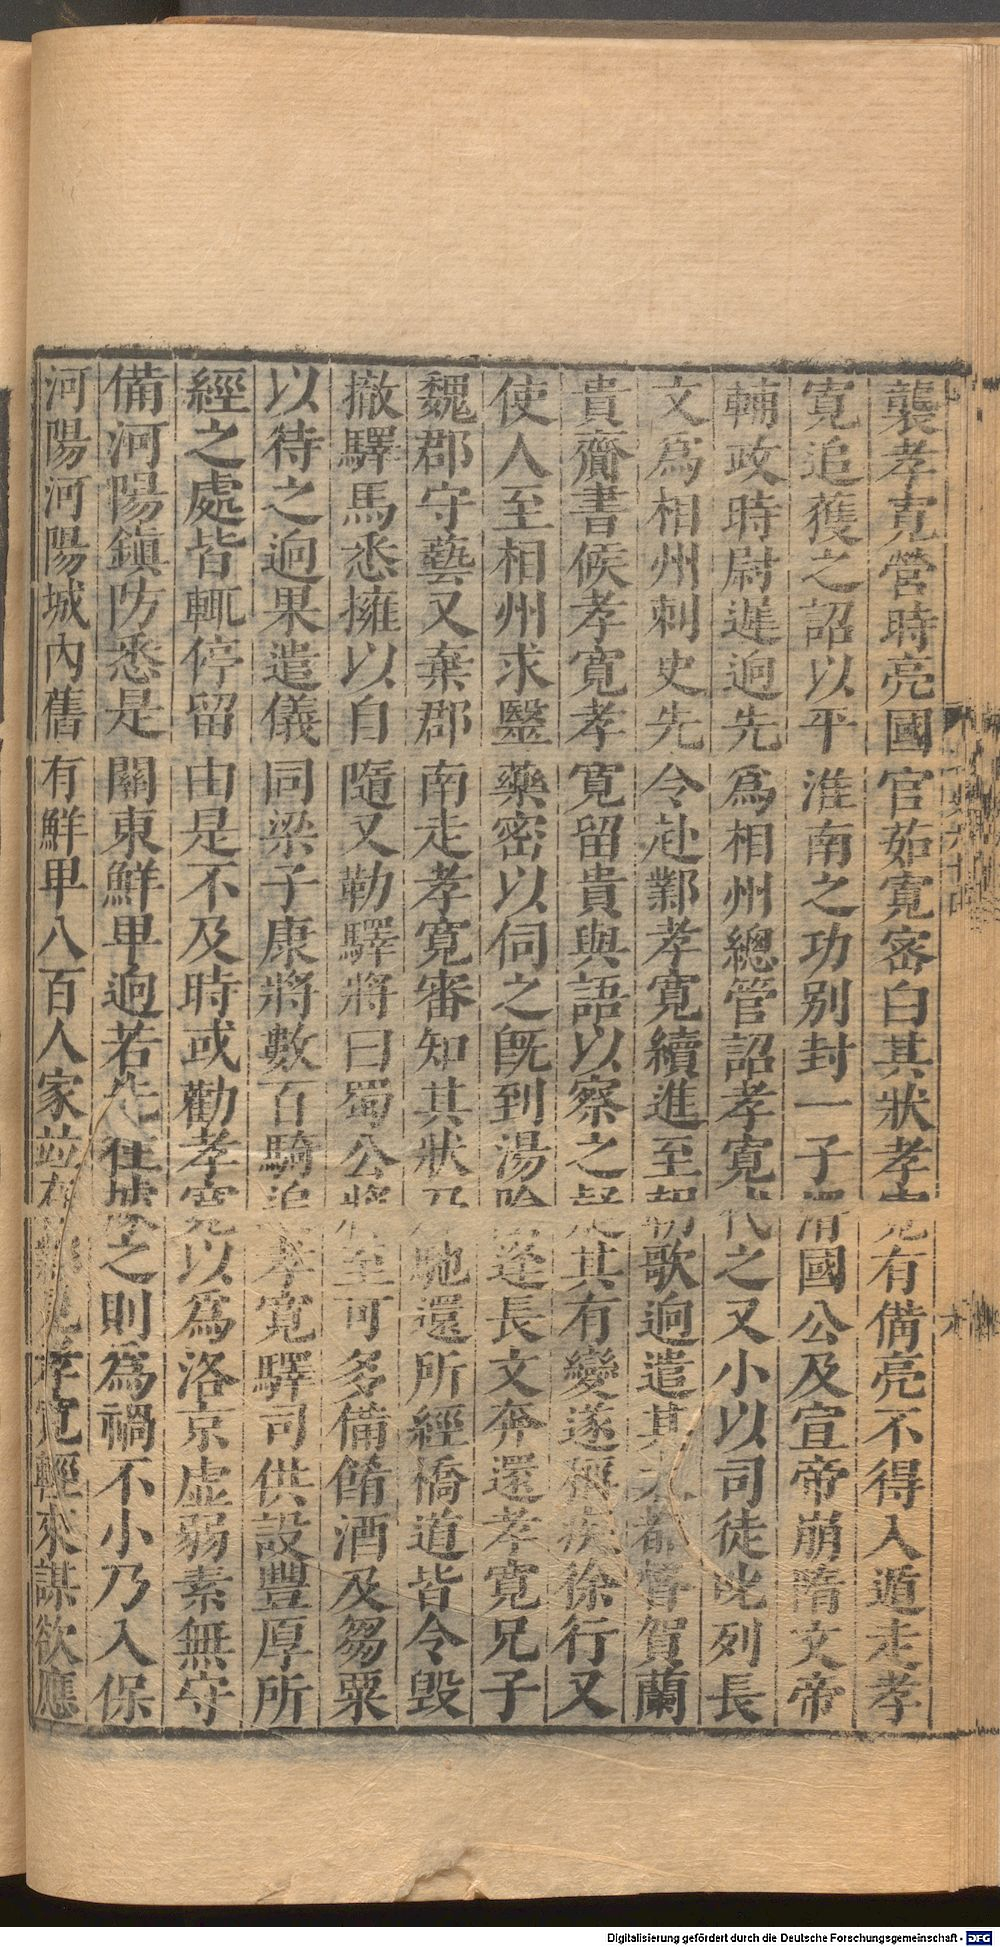 襲孝寬營時亮國官茹寬密白其狀孝寬有備亮不得入遁走孝
寬追獲之詔以平淮南之功別封一子滑國公及宣帝崩隋文帝
輔政時尉遲迥先爲相州總管詔孝寬代之又小以司徒叱列長
文爲相州刺史先令赴鄴孝寬續進至朝歌迥遣其大都督賀蘭
貴齎書候孝寬孝寬留貴與語以察之疑其有變遂稱疾徐行又
使人至相州求醫藥密以伺之既到湯陰逢長文奔還孝寬兄子
魏郡守藝又棄郡南走孝寬審知其狀乃馳還所經橋道皆令毀
撤驛馬悉擁以自隨又勒驛將曰蜀公將至可多備餚酒及芻粟
以待之迥果遣儀同梁子康將數百騎追孝寬驛司供設豐厚所
經之處皆輒停留由是不及時或勸孝寬以爲洛京虛弱素無守
備河陽鎮防悉是關東鮮卑迥若先往據之則爲禍不小乃入保
河陽河陽城內舊有鮮卑八百人家並在鄴見孝寬輕來謀欲應
Digitalisierung gefördert durch die Deutsche Forschungsgemeinschaft - DFG